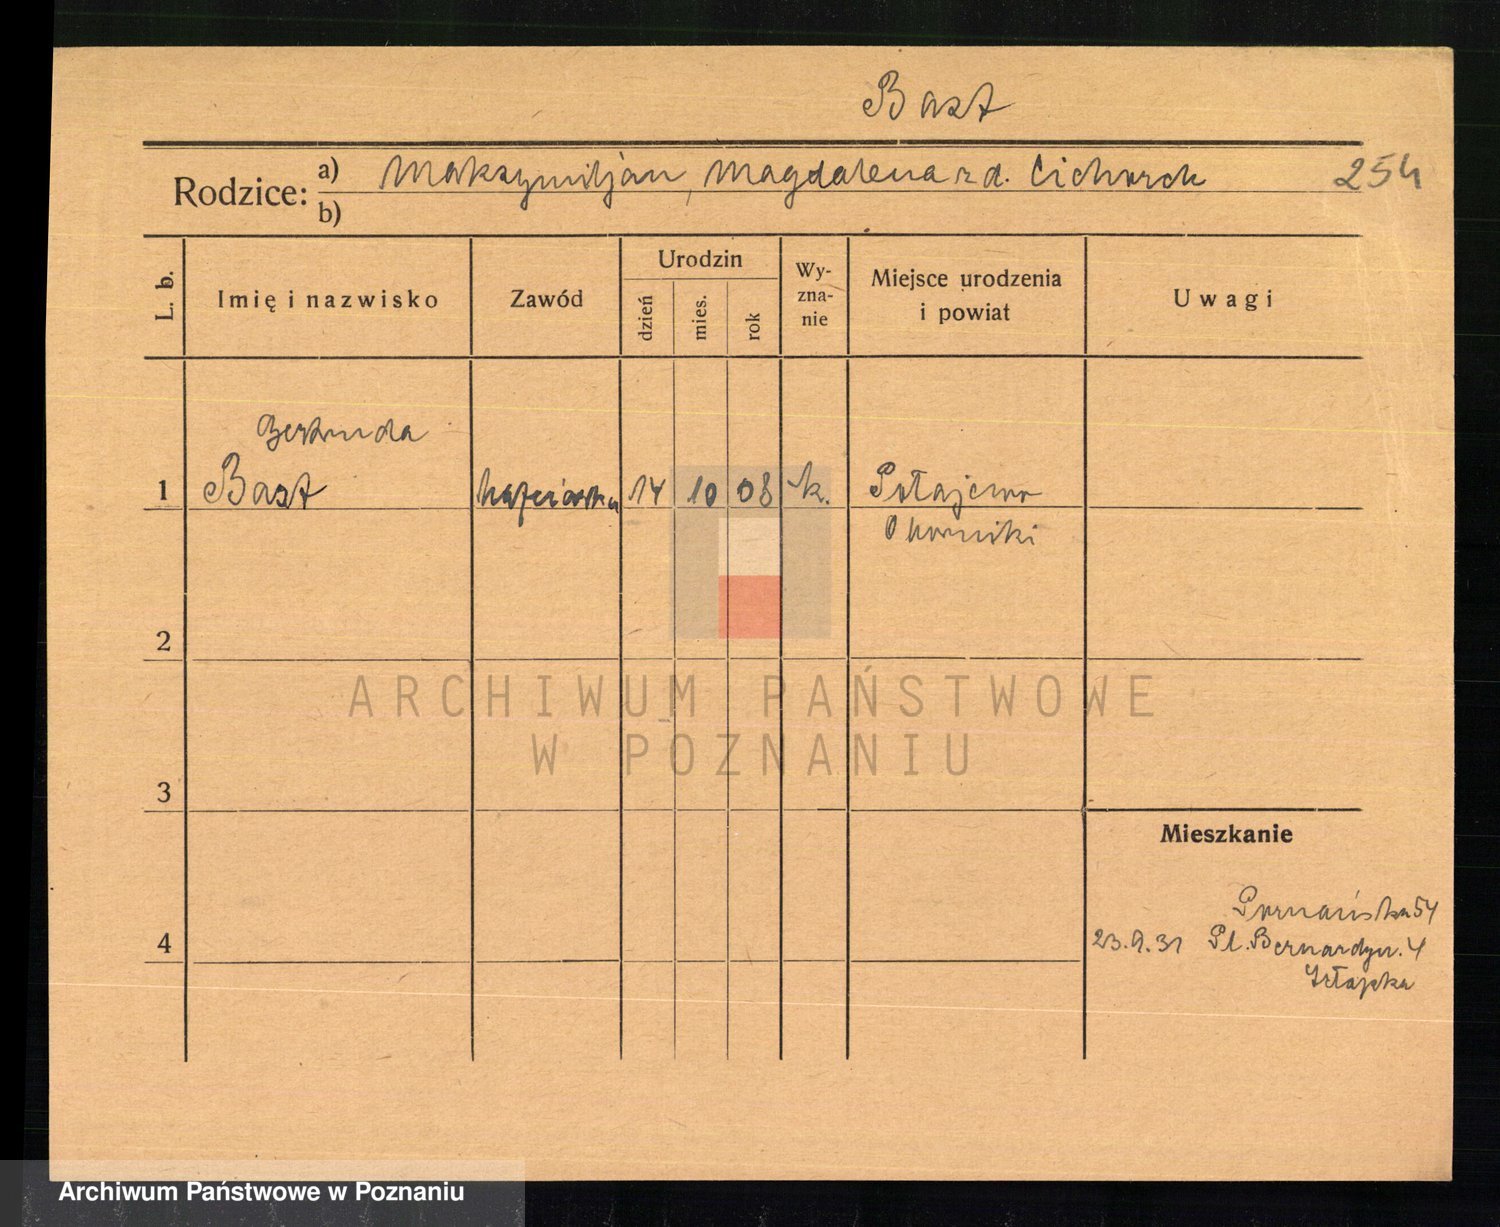 Bast
Rodzice: a) Maksymiljan, Magdalena zd. 254
b)
L. b.
Imię i nazwisko
Zawód
Urodzin
dzień
mies.
rok
Wy-
zna-
nie
Miejsce urodzenia
i powiat
Uwagi
Gertruda
1 Bast hafciarka 14 10 08 k. Połajewo
Oborniki
2
3
4
Mieszkanie
Poznańska 54
23.9.31 Pl. Bernardyn. 4
ARCHIWUM PAŃSTWOWE
W POZNANIU
Archiwum Państwowe w Poznaniu